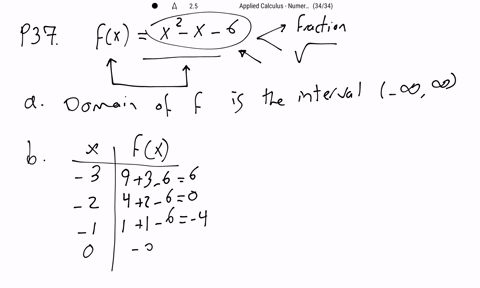 2.5 Applied Calculus - Numer... (34/34)
P37. f(x) = x² - x - 6 fraction
√
a. Domain of f is the interval (-∞, ∞)
b. x f(x)
-3 9+3-6=6
-2 4+2-6=0
-1 1+1-6=-4
0